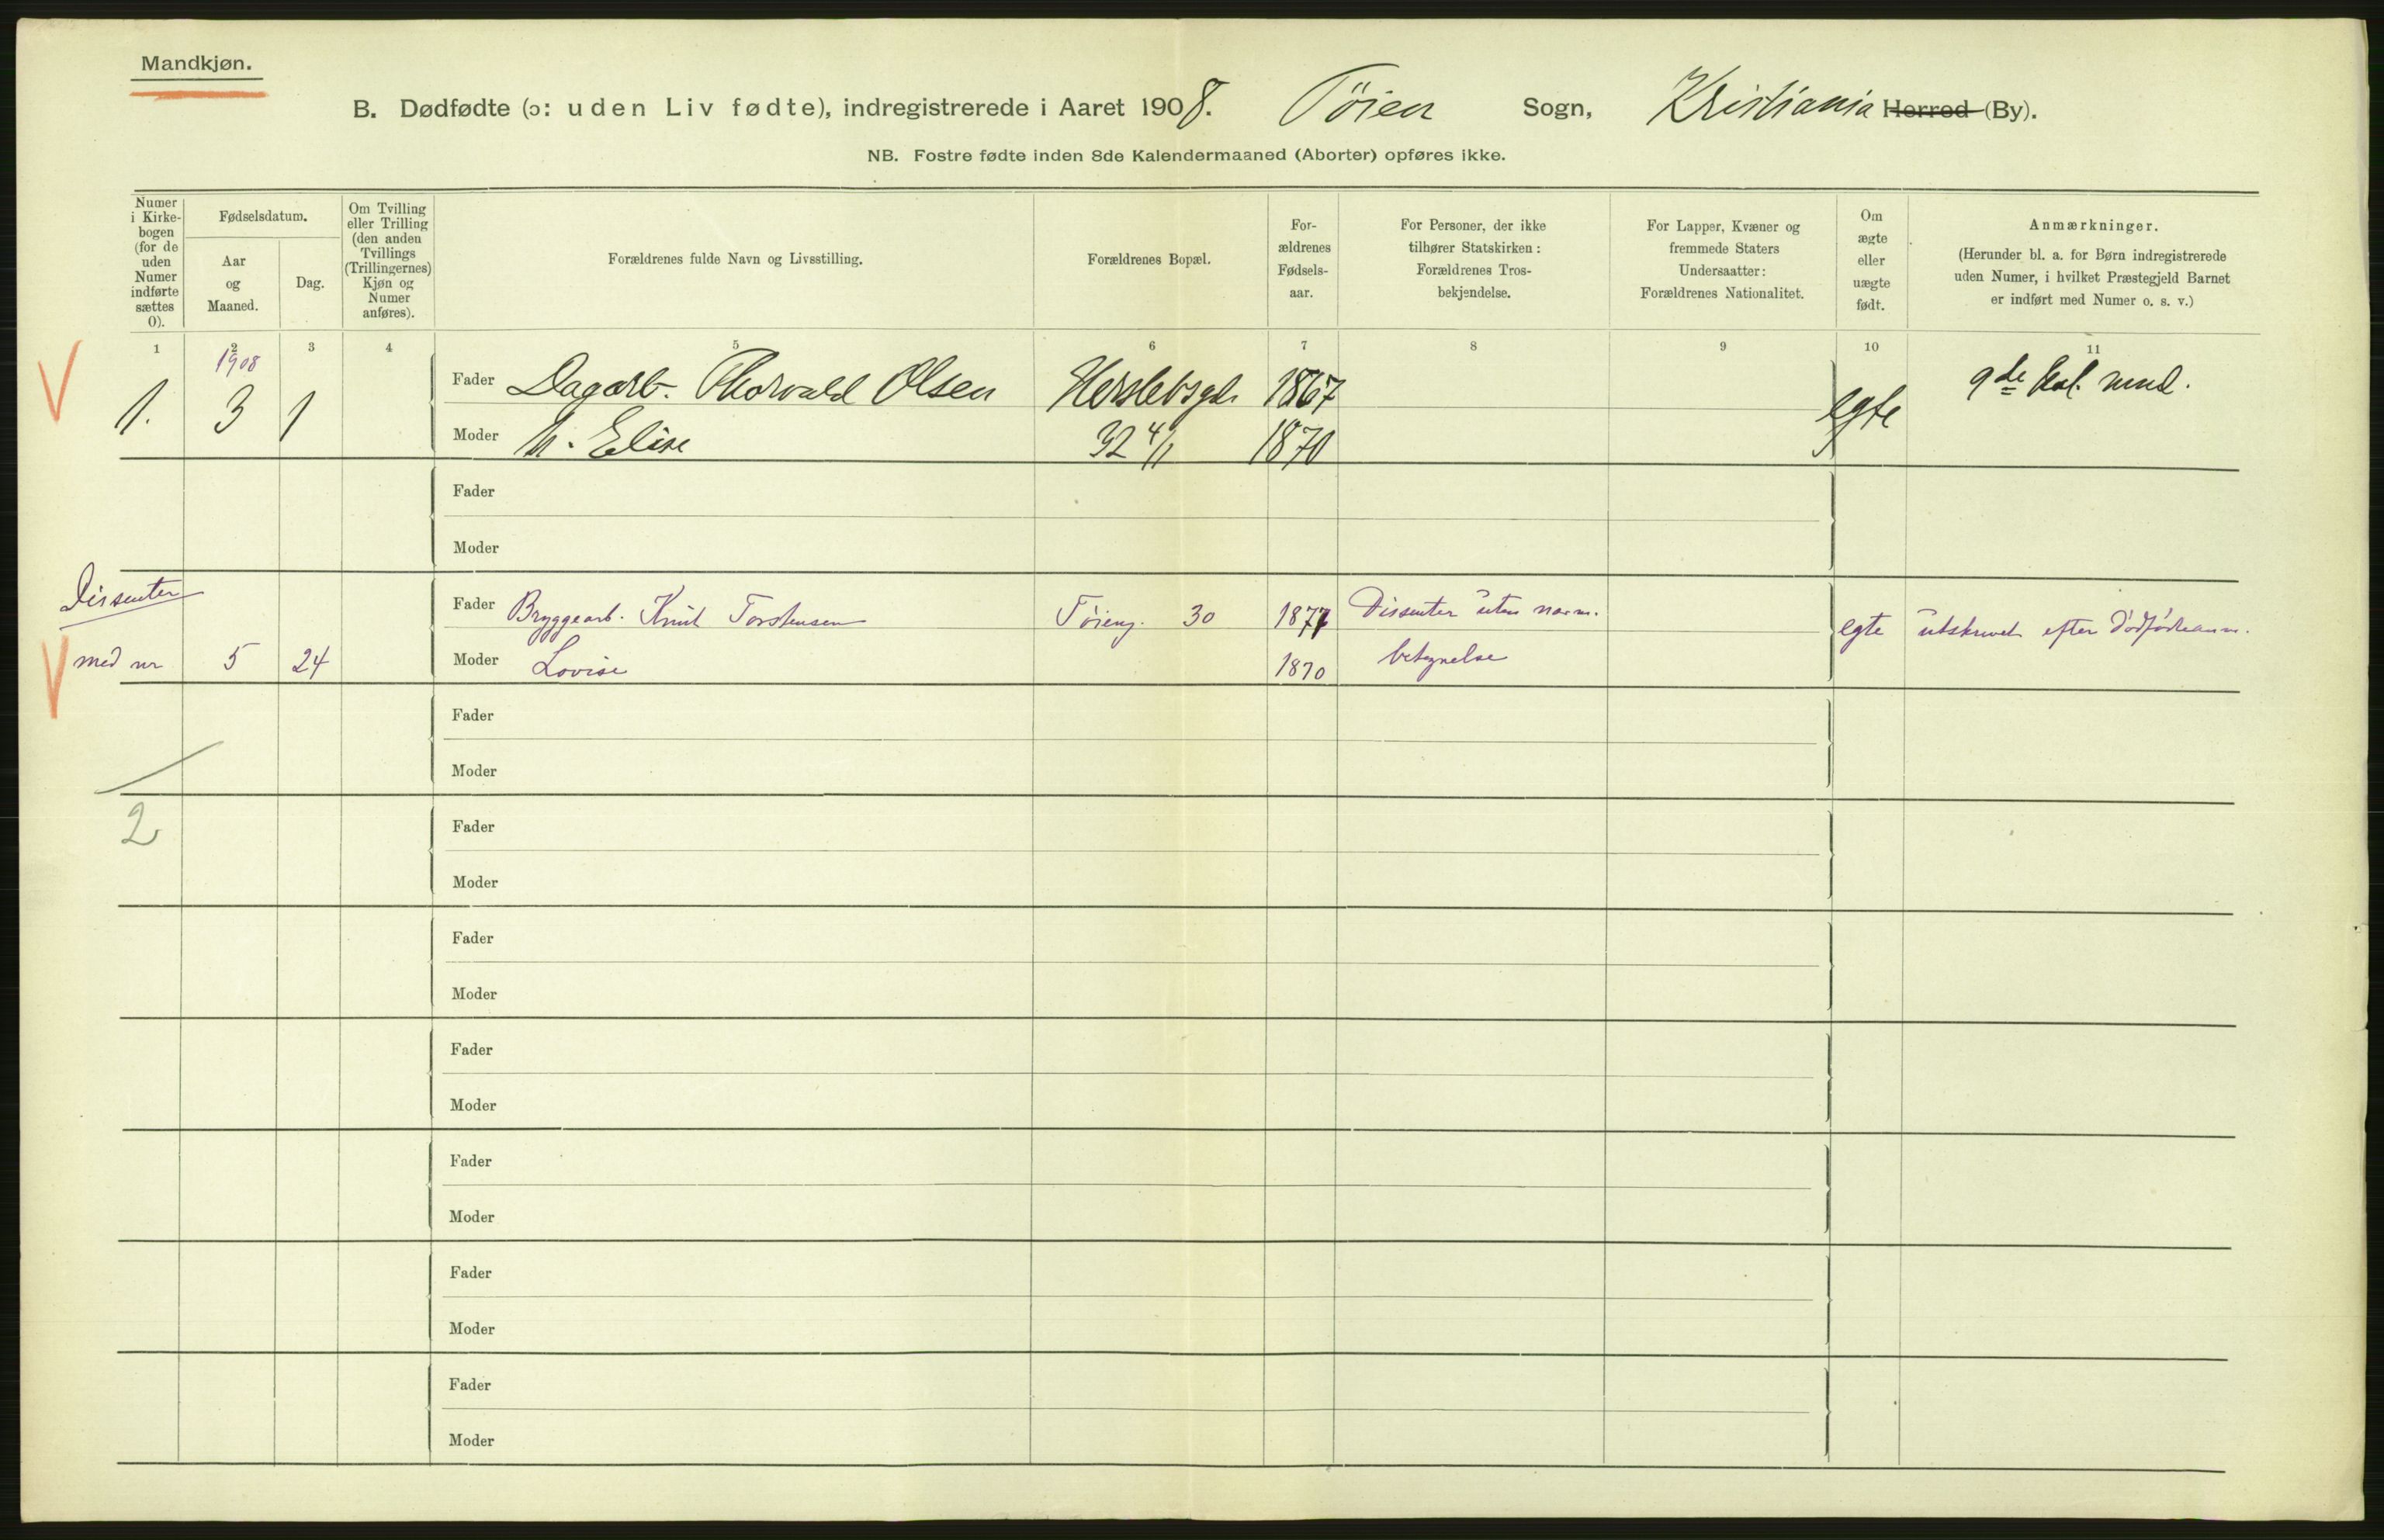 Mandkjøn.
B. Dødfødte (ɔ: uden Liv fødte), indregistrerede i Aaret 1908. Tøien Sogn, Kristiania Herred (By).
NB. Fostre fødte inden 8de Kalendermaaned (Aborter) opføres ikke.
Numer
i Kirke-
bogen
(for de
uden
Numer
indførte
sættes
0).
Fødselsdatum.
Aar
og
Maaned.
Dag.
Om Tvilling
eller Trilling
(den anden
Tvillings
(Trillingernes)
Kjøn og
Numer
anføres).
Forældrenes fulde Navn og Livsstilling.
Forældrenes Bopæl.
For-
ældrenes
Fødsels-
aar.
For Personer, der ikke
tilhører Statskirken:
Forældrenes Tros-
bekjendelse.
For Lapper, Kvæner og
fremmede Staters
Undersaatter:
Forældrenes Nationalitet.
Om
ægte
eller
uægte
født.
Anmærkninger.
(Herunder bl. a. for Børn indregistrerede
uden Numer, i hvilket Præstegjeld Barnet
er indført med Numer o. s. v.)
1 2 3 4 5 6 7 8 9 10 11
1908
1. 3 1
Fader Dagarb. Thorvald Olsen Herslebsgd. 1867
Moder h. Elise 32 4/1 1870
egte
9de kal. mnd.
Fader
Moder
Dissenter
med nr 5 24
Fader Bryggearb. Knut Torstensen Tøieng. 30 1877 Dissenter uten nærm.
Moder Lovise 1870 betegnelse
egte utskrevet efter dødfødteanm.
Fader
Moder
2
Fader
Moder
Fader
Moder
Fader
Moder
Fader
Moder
Fader
Moder
Fader
Moder